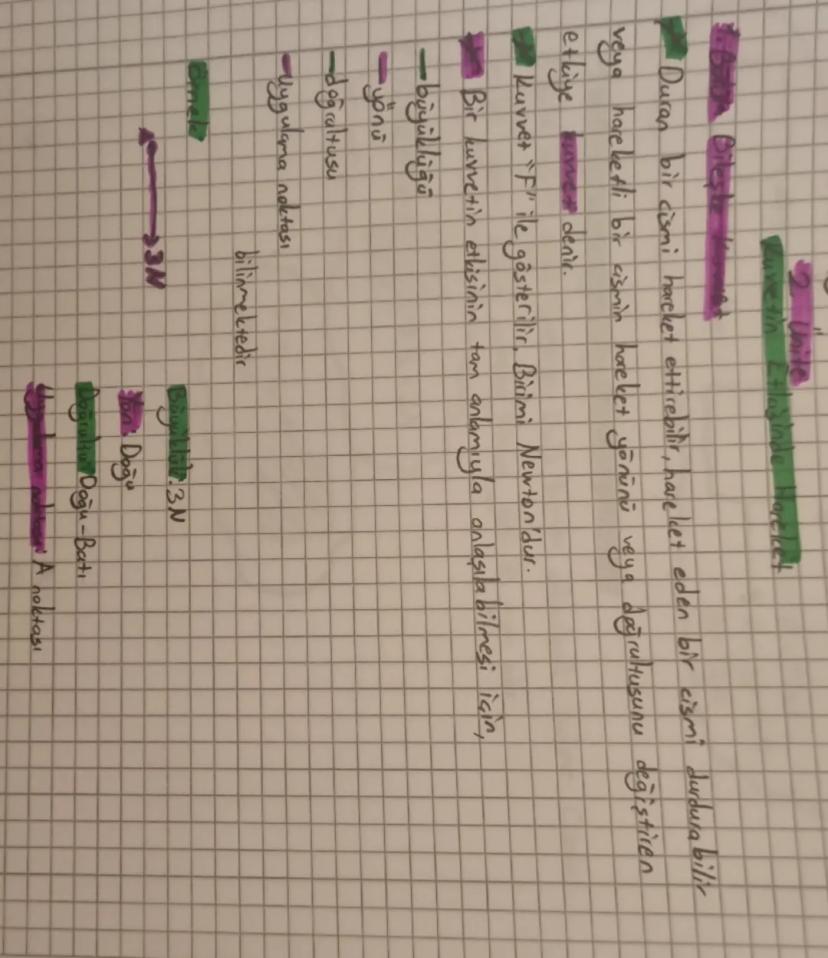 2. Ünite
Kuvvetin Etkisinde Hareket
1. Bölüm Bileşke Kuvvet
Duran bir cismi hareket ettirebilir, hareket eden bir cismi durdurabilir
veya hareketli bir cismin hareket yönünü veya doğrultusunu değiştiren
etkiye kuvvet denir.
Kuvvet "F" ile gösterilir. Birimi Newton'dur.
Bir kuvvetin etkisinin tam anlamıyla anlaşılabilmesi için,
-büyüklüğü
-yönü
-doğrultusu
-uygulama noktası
bilinmektedir
Örnek
A 3N
Büyüklük: 3N
Yön: Doğu
Doğrultu: Doğu-Batı
Uygulama noktası A noktası